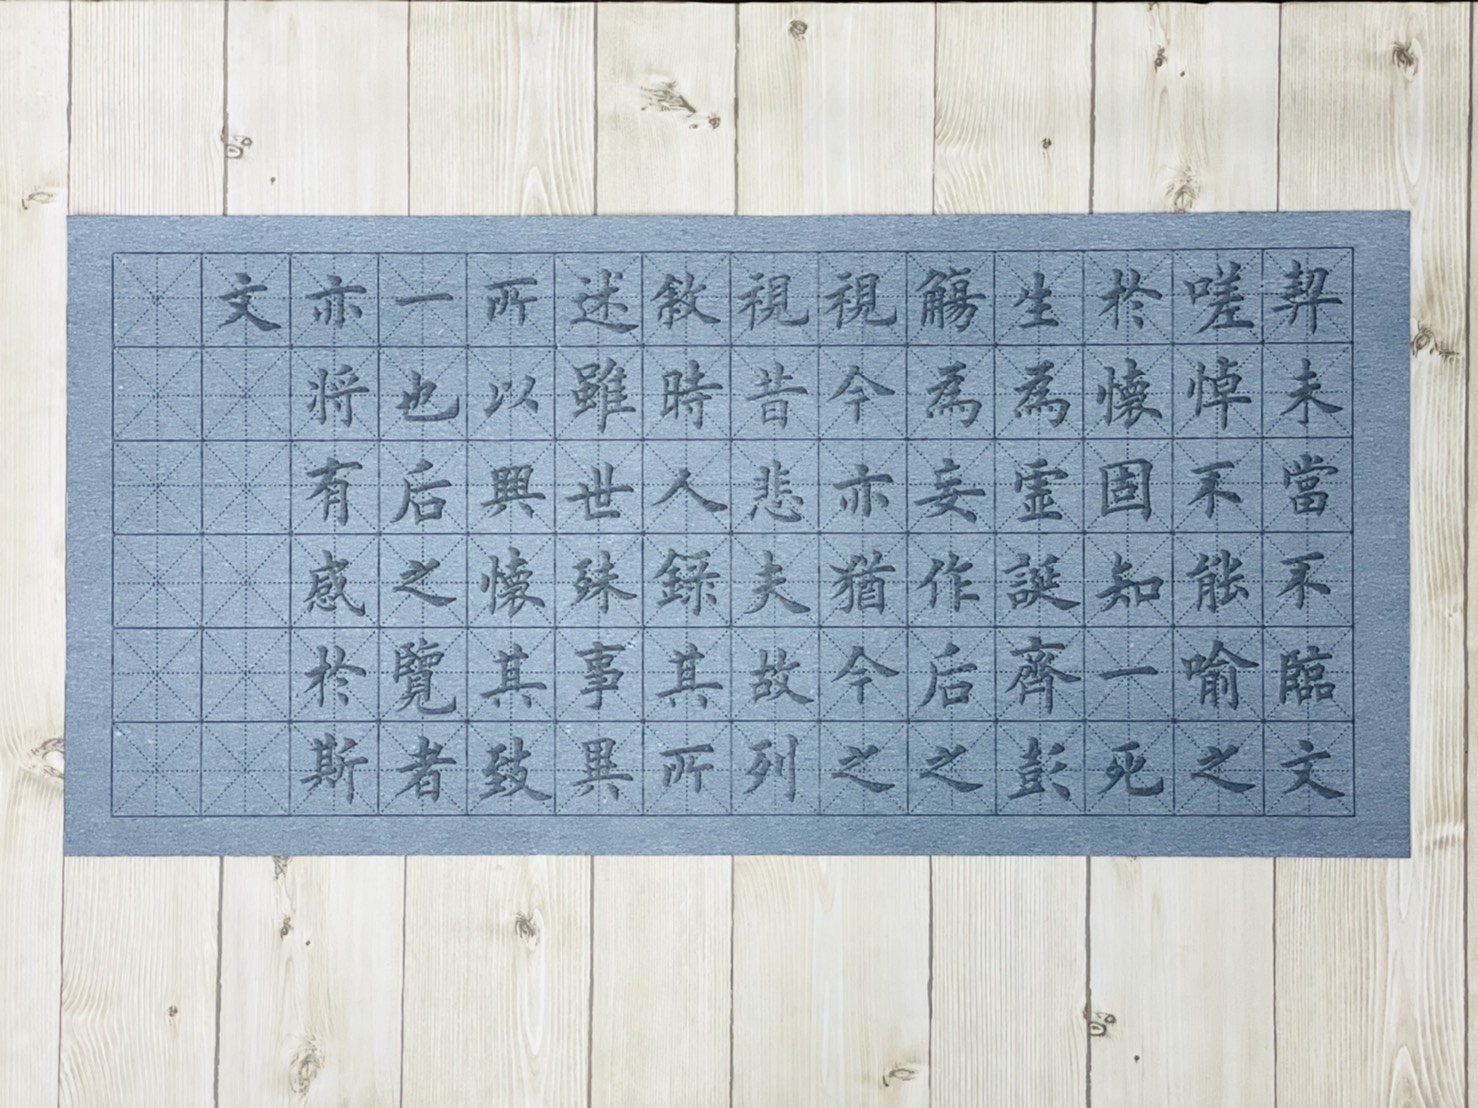 契未當不臨文
嗟悼不能喻之
於懷固知一死
生為虛誕齊彭
觴為妄作后之
視今亦猶今之
視昔悲夫故列
敘時人錄其所
述雖世殊事異
所以興懷其致
一也后之覽者
亦将有感於斯
文